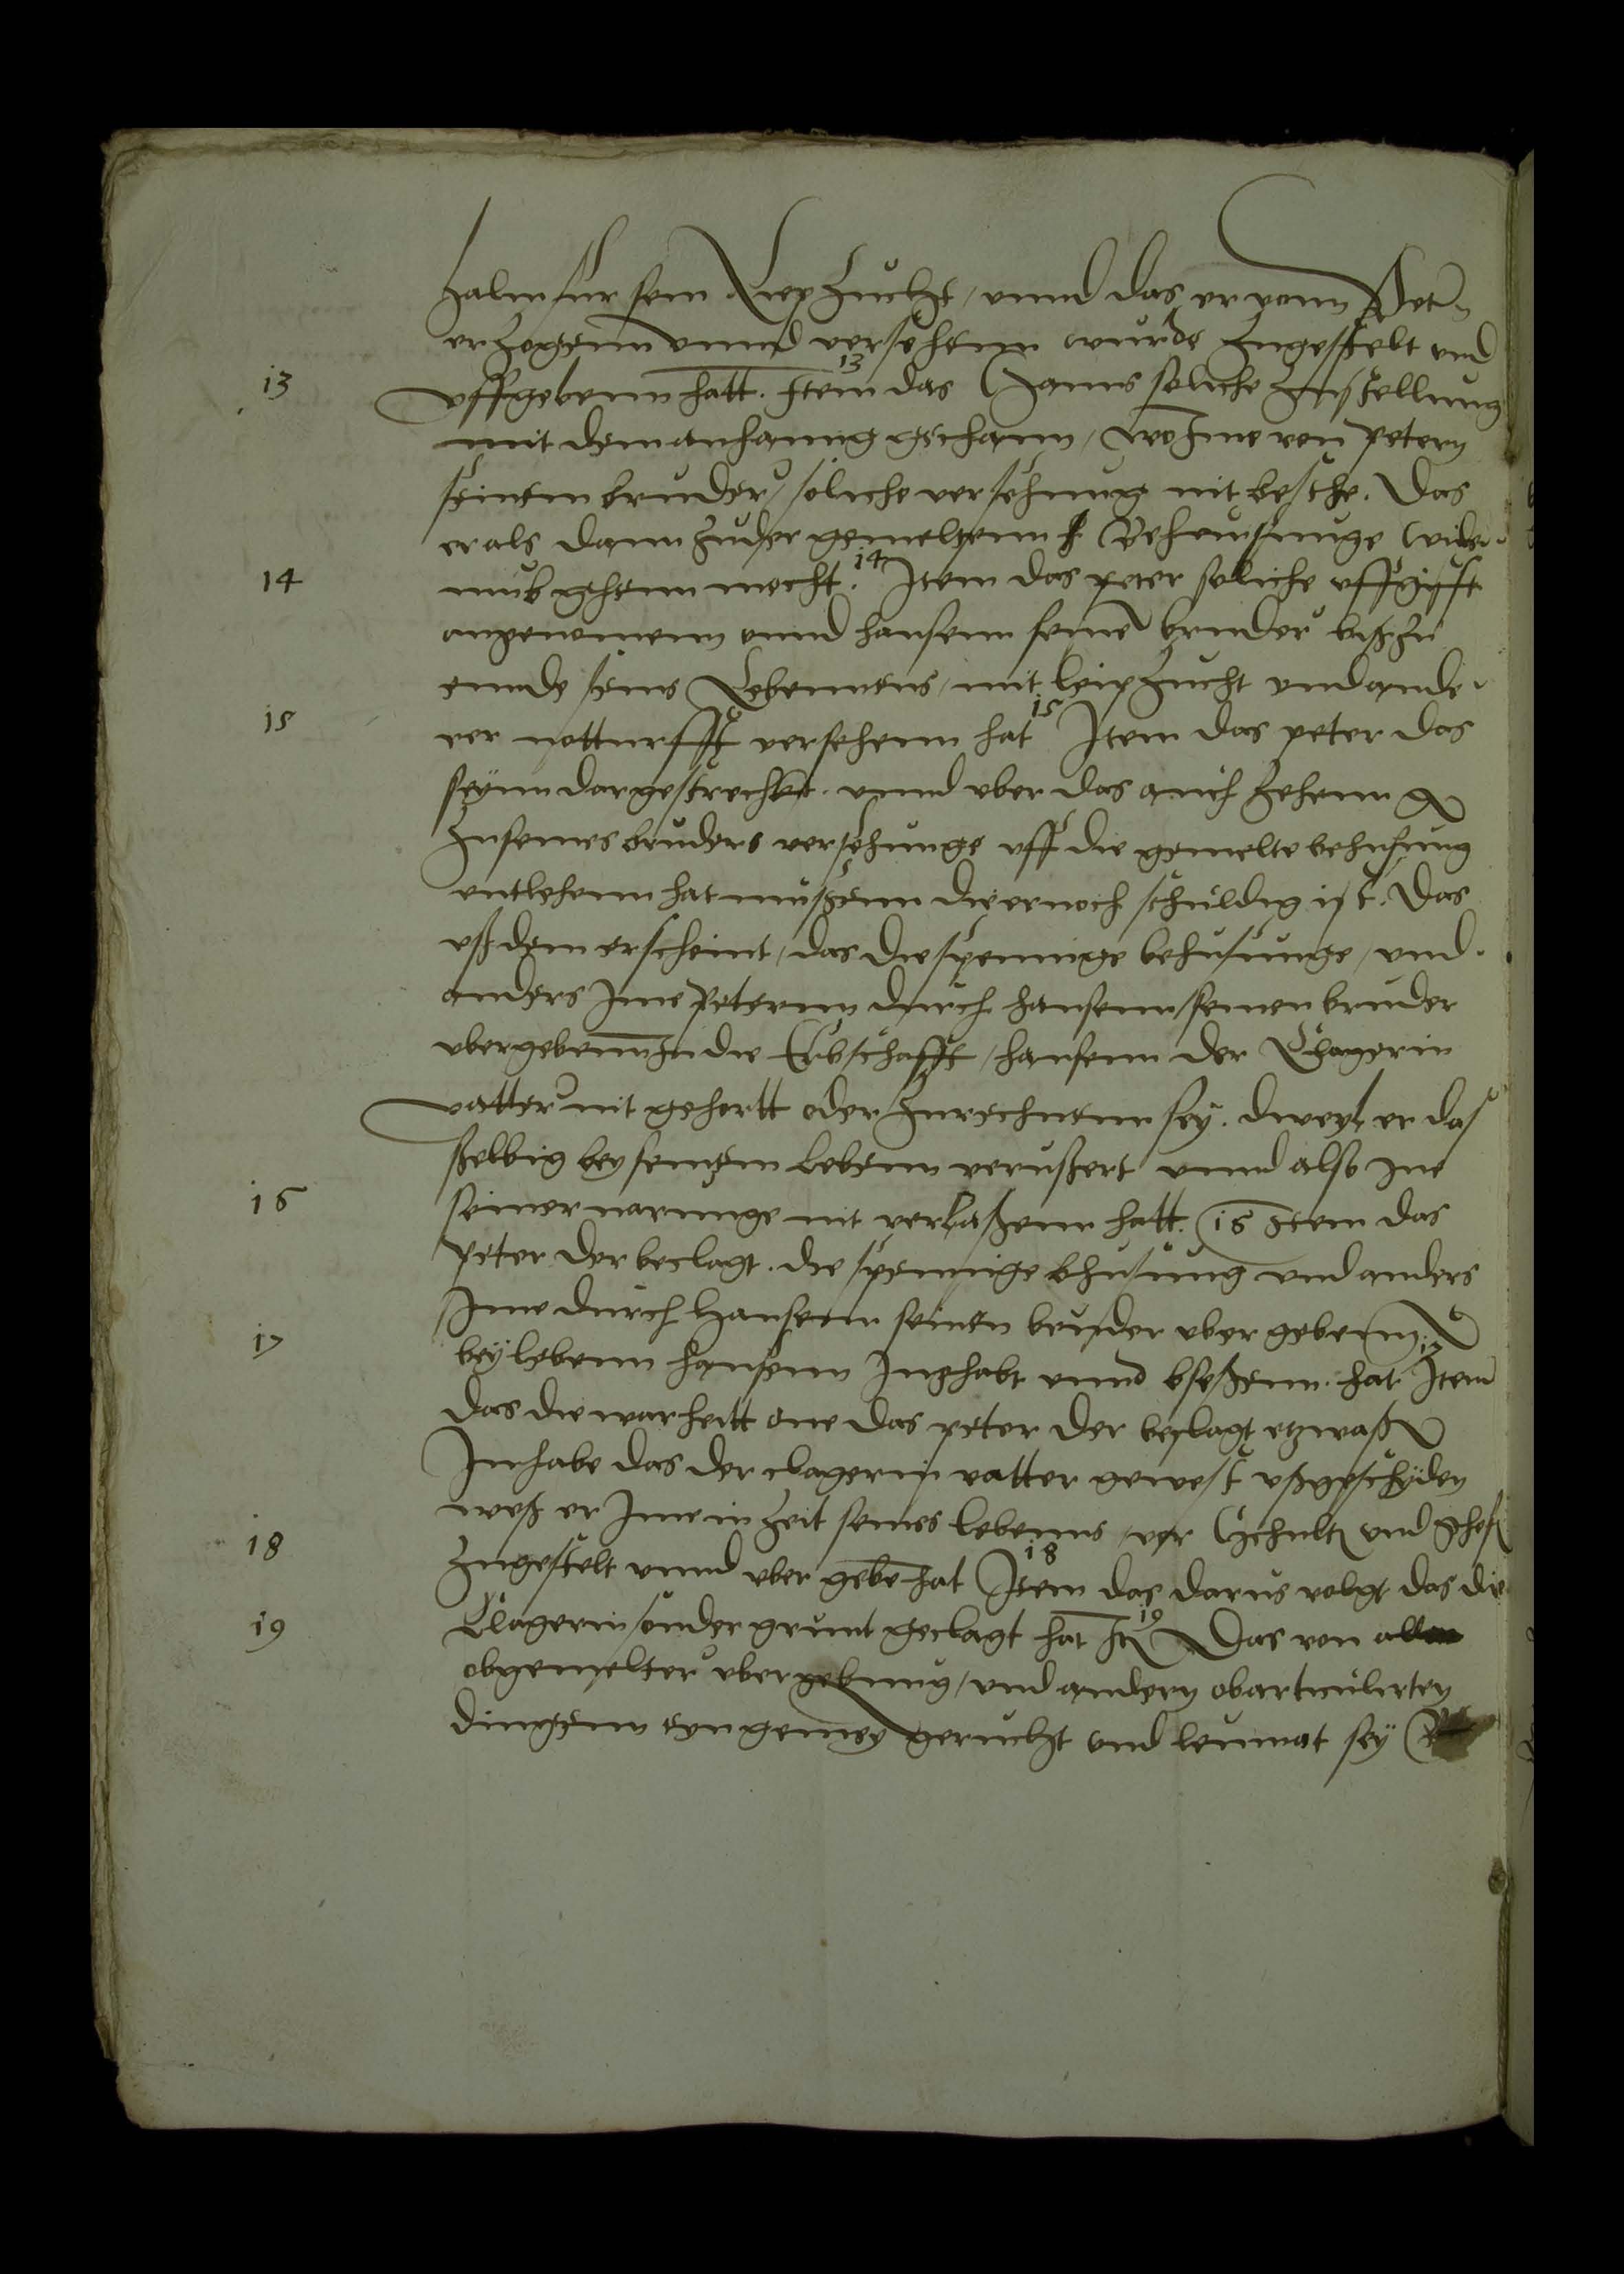 halm fur sein Liepzucht, unnd das er vonn Pet
erzogenn unnd versehenn wurde Zugestelt und
13 uffgebenn hatt. 13 Item das Hanns soliche Zustellung
mit dem anhanng gethann, wo Ime von petern
seinem bruder, soliche versehung nit besche. Das
er als dann zu der gemeltenn Behausunge wider
14 umb ghenn mocht. 14 Item das peter soliche uffgifft
angenomenn unnd hansenn seinen bruder bißzu
ennde seins Lebennens, mit leipzucht und ande
15 rer notturfft versehenn hat 15 Item das peter das
seynn dargestreckt. unnd uber das auch zehenn
zu seines bruders versehunge uff die gemelte behusung
entlehenn hat mussenn die er noch schuldig ist. Das
uß dem erscheint, das die spennige behusunge, und
anders Ime Peternn durch hansenn seinen bruder
ubergebenn In die Erbschafft, hansenn der Clagerin
vatter nit gehortt oder zurechnenn sey. dweyl er das
selbig bey seinem Lebenn verussert unnd also Ine
16 seiner narunge nit verlaßenn hatt. 16 Item das
peter der beclagt. die spennige bhusung und anders
Ime durch Hansenn seinen bruder uber gebenn
17 bey lebenn hansenn Inghabt unnd bseßenn hat 17 Item
das die warheitt one das peter der beclagt etzwaß
Inhabe das der clagerin vatter gewest ußgeschyden
weß er Ime in Zeit seines lebenns, vor Schult und
18 zugestelt unnd uber gebe hat 18 Item das darus volgt das die
19 Clagerin sonder grunt geclagt hat 19 Das von allen
obgemelter ubergebung, und andern obarticulirten
dingenn eyn gemey gerucht und leumat sey